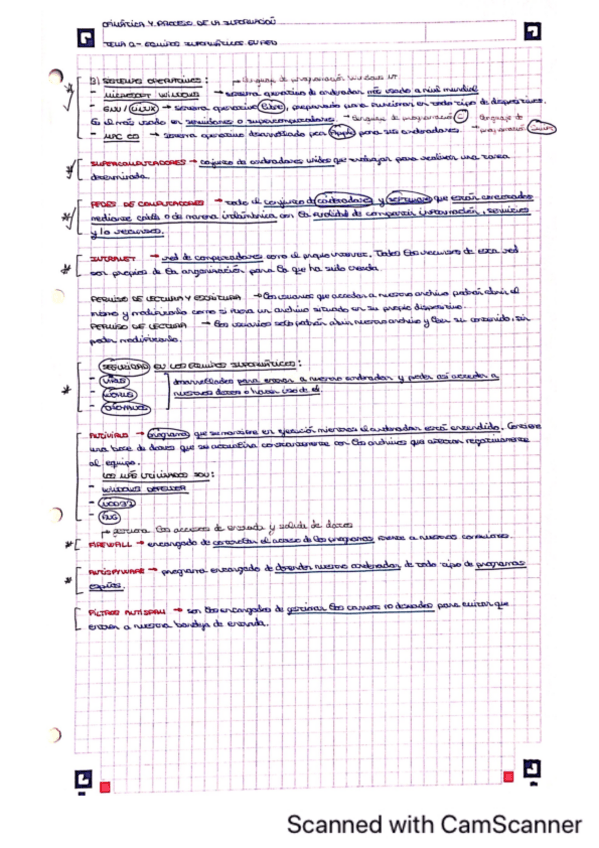 OFIMÁTICA Y PROCESO DE LA INFORMACIÓN
TEMA 2- EQUIPOS INFORMÁTICOS EN RED
3) SISTEMAS OPERATIVOS: lenguaje de programación Windows NT
- MICROSOFT WINDOWS → sistema operativo de ordenador más usado a nivel mundial
- GNU / LINUX → sistema operativo libre, preparado para funcionar en todo tipo de dispositivos.
Es el más usado en servidores o supercomputadores. → lenguaje de programació C
- MAC OS → sistema operativo desarrollado por Apple para sus ordenadores. → lenguaje de programació
SUPERCOMPUTADORES → conjunto de ordenadores unidos que trabajan para realizar una tarea
determinada.
REDES DE COMPUTADORES → todo el conjunto de ordenadores y software que están conectados
mediante cable o de manera inalámbrica con la finalidad de compartir información, servicios
y/o recursos.
INTRANET → red de computadores como el propio internet. Todos los recursos de esta red
son propios de la organización para la que ha sido creada.
PERMISO DE LECTURA Y ESCRITURA → los usuarios que accedan a nuestro archivo podrán abrir el
mismo y modificarlo como si fuera un archivo situado en su propio dispositivo.
PERMISO DE LECTURA → los usuarios solo podrán abrir nuestro archivo y leer su contenido, sin
poder modificarlo.
SEGURIDAD EN LOS EQUIPOS INFORMÁTICOS:
- VIRUS
- WORMS
- TROYANOS
desarrollados para entrar a nuestro ordenador y poder así acceder a
nuestros datos o hacer uso de él.
ANTIVIRUS → programa que se mantiene en ejecución mientras el ordenador está encendido. Contiene
una base de datos que se actualiza constantemente con los archivos que afectan negativamente
al equipo.
LOS MÁS UTILIZADOS SON:
- WINDOWS DEFENDER
- NOD32
- AVG
gestiona los accesos de entrada y salida de datos
FIREWALL → encargado de controlar el acceso de los programas a nuestras conexiones.
ANTISPYWARE → programa encargado de defender nuestro ordenador de todo tipo de programas
espías.
FILTROS ANTISPAM → son los encargados de gestionar los correos no deseados para evitar que
entren a nuestra bandeja de entrada.
Scanned with CamScanner